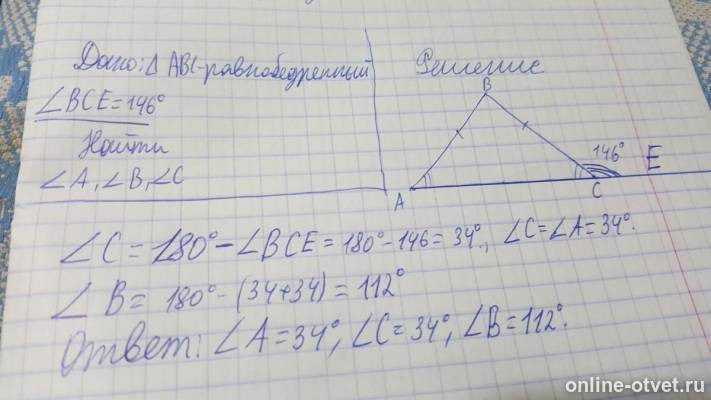 Дано: Δ ABC-равнобедренный
∠BCE=146°
Найти
∠A, ∠B, ∠C
Решение
B
146°
E
A
C
∠C = 180° - ∠BCE = 180° - 146 = 34°, ∠C = ∠A = 34°.
∠B = 180° - (34+34) = 112°
Ответ: ∠A = 34°, ∠C = 34°, ∠B = 112°.
online-otvet.ru